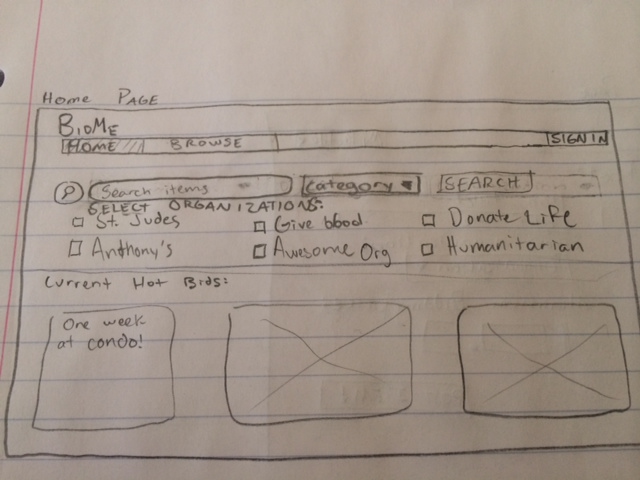 Home Page
BidMe
HOME BROWSE SIGN IN
Search items category SEARCH
SELECT ORGANIZATIONS:
St. Judes Give blood Donate Life
Anthony's Awesome Org Humanitarian
Current Hot Bids:
One week
at condo!